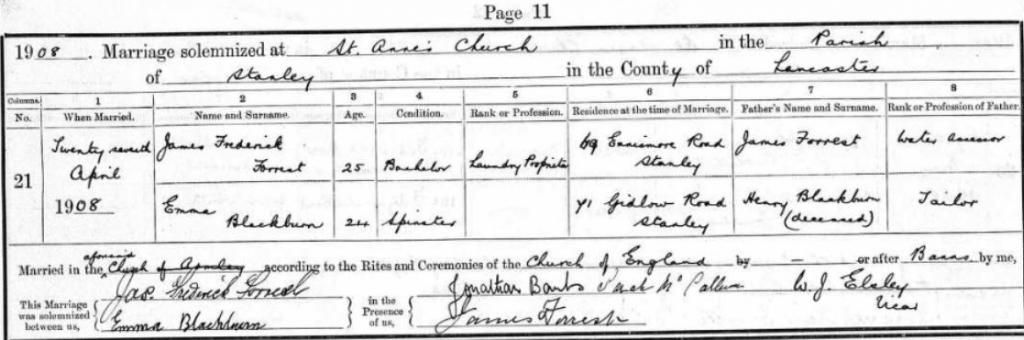 Page 11
1908. Marriage solemnized at St. Anne's Church in the Parish
of Stanley in the County of Lancaster
Columns. 1 2 3 4 5 6 7 8
No. When Married. Name and Surname. Age. Condition. Rank or Profession. Residence at the time of Marriage. Father's Name and Surname. Rank or Profession of Father.
21 Twenty seventh April 1908
James Frederick Forrest 25 Bachelor Laundry Proprietor 69 Road Stanley James Forrest Water assessor
Emma Blackburn 24 Spinster 71 Gidlow Road Stanley Henry Blackburn (deceased) Tailor
Married in the aforesaid Church of according to the Rites and Ceremonies of the Church of England by — or after Banns by me,
This Marriage was solemnized between us, Jas. Frederick Forrest Emma Blackburn in the Presence of us, Jonathan Banks McCallum James Forrest W. J. Elsley Vicar